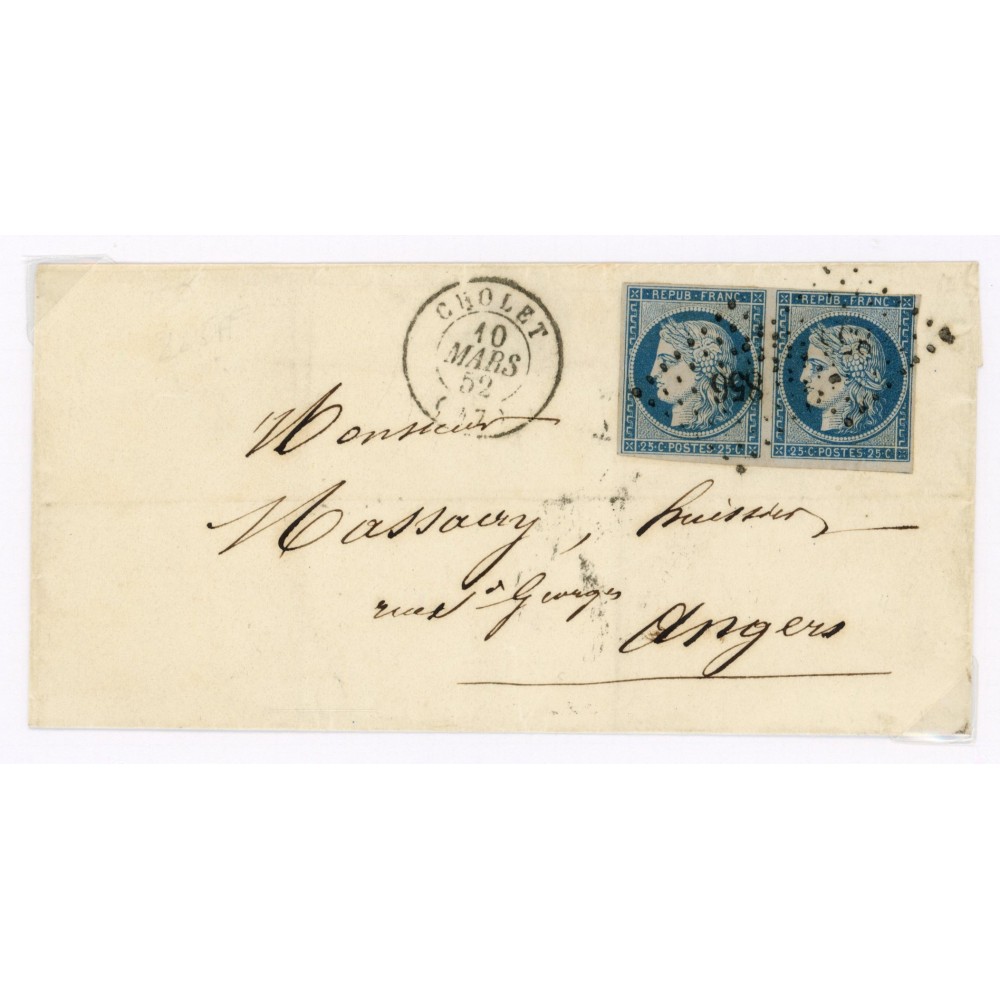 CHOLET
10
MARS
52
REPUB·FRANC
25·C·POSTES·25·C
REPUB·FRANC·
25·C·POSTES·25·C
Monsieur
huissier
rue St Georges
Angers